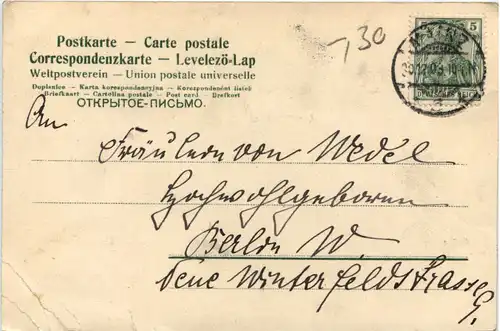 Postkarte – Carte postale
Correspondenzkarte – Levelező-Lap
Weltpostverein – Union postale universelle
Dopisnice – Karta korespondencyjna – Korespondenční lístek
Briefkaart – Cartolina postale – Post card – Brefkort
ОТКРЫТОЕ-ПИСЬМО.
730
5
An
Fräulein von Wedel
Hochwohlgeboren
Berlin W.
Neue Winterfeldstrasse